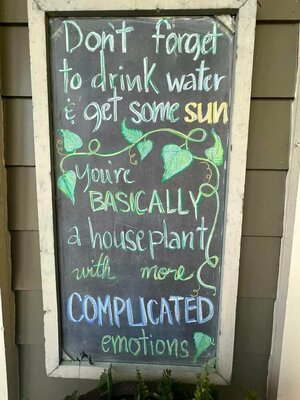 Don't forget
to drink water
& get some SUN
you're
BASICALLY
a houseplant
with more
COMPLICATED
emotions